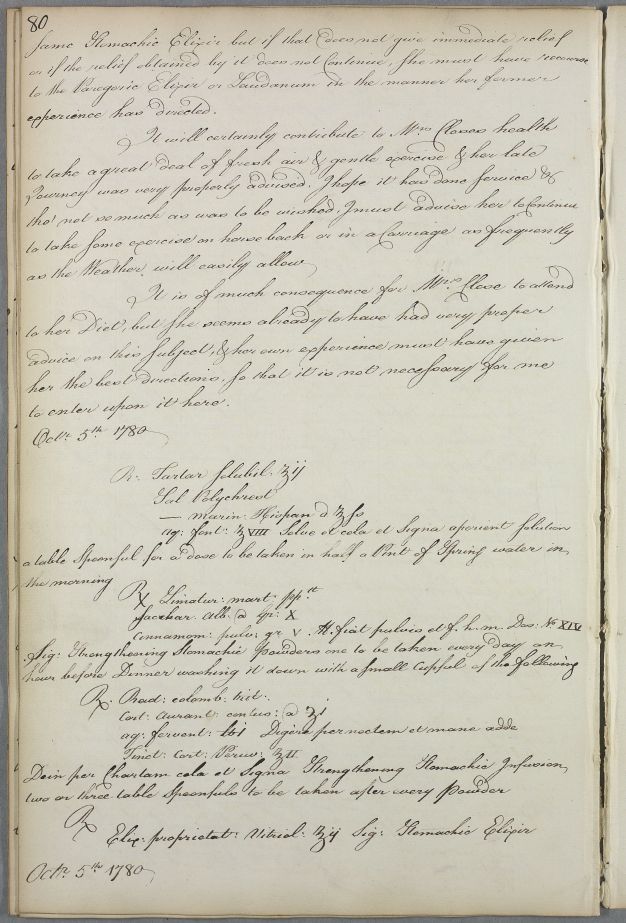 80
same Stomachic Elixir but if that does not give immediate relief
or if the relief obtained by it does not Continue, She must have recourse
to the Paregoric Elixir or Laudanum in the manner her former
experience has directed.
It will certainly contribute to Mrs Closes health
to take a great deal of fresh air & gentle exercise & her late
Journey was very properly advised. I hope it has done service &
tho' not so much as was to be wished, I must advise her to Continue
to take some exercise on horse back or in a Carriage as frequently
as the Weather will easily allow
It is of much consequence for Mrs Close to attend
to her Diet, but She seems already to have had very proper
advice on this Subject, & her own experience must have given
her the best directions, so that it is not necessary for me
to enter upon it here.
Octr. 5th 1780
R: Tartar Solubil. ℥ij
Sal Polychrest
— marin: Hispan a ℥ss
aq: font: ℥XVIII Solve et cola et Signa aperient Solution
a table Spoonful for a dose to be taken in half a Pint of Spring water in
the morning
R Limatur: mart: ppt
Sacchar. Alb. a gr: X
Cinnamom: pulv: gr V. M. fiat pulvis et f. h. m. Dos: No XIV
Sig: Strengthening Stomachic Powders one to be taken every day an
hour before Dinner washing it down with a Small Cupful of the following
R. Rad: colomb: trit:
Cort: Aurant: contus: a ʒi
aq: fervent: lbi Digere per noctem et mane adde
Tinct: Cort: Peruv: ℥II
Dein per Chartam cola et Signa Strengthening Stomachic Infusion
two or three table Spoonfuls to be taken after every Powder
R
Elix: proprietat: Vitriol: ℥ij Sig: Stomachic Elixir
Octr. 5th 1780